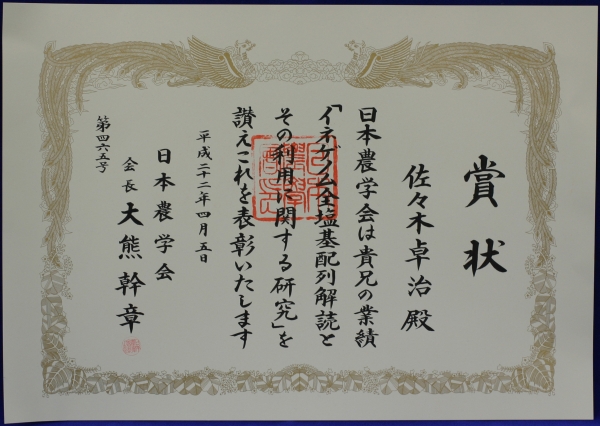 賞状
佐々木卓治殿
日本農学会は貴兄の業績
「イネゲノム全塩基配列解読と
その利用に関する研究」を
讃えこれを表彰いたします
平成二十二年四月五日
日本農学会
会長 大熊幹章
第四六五号